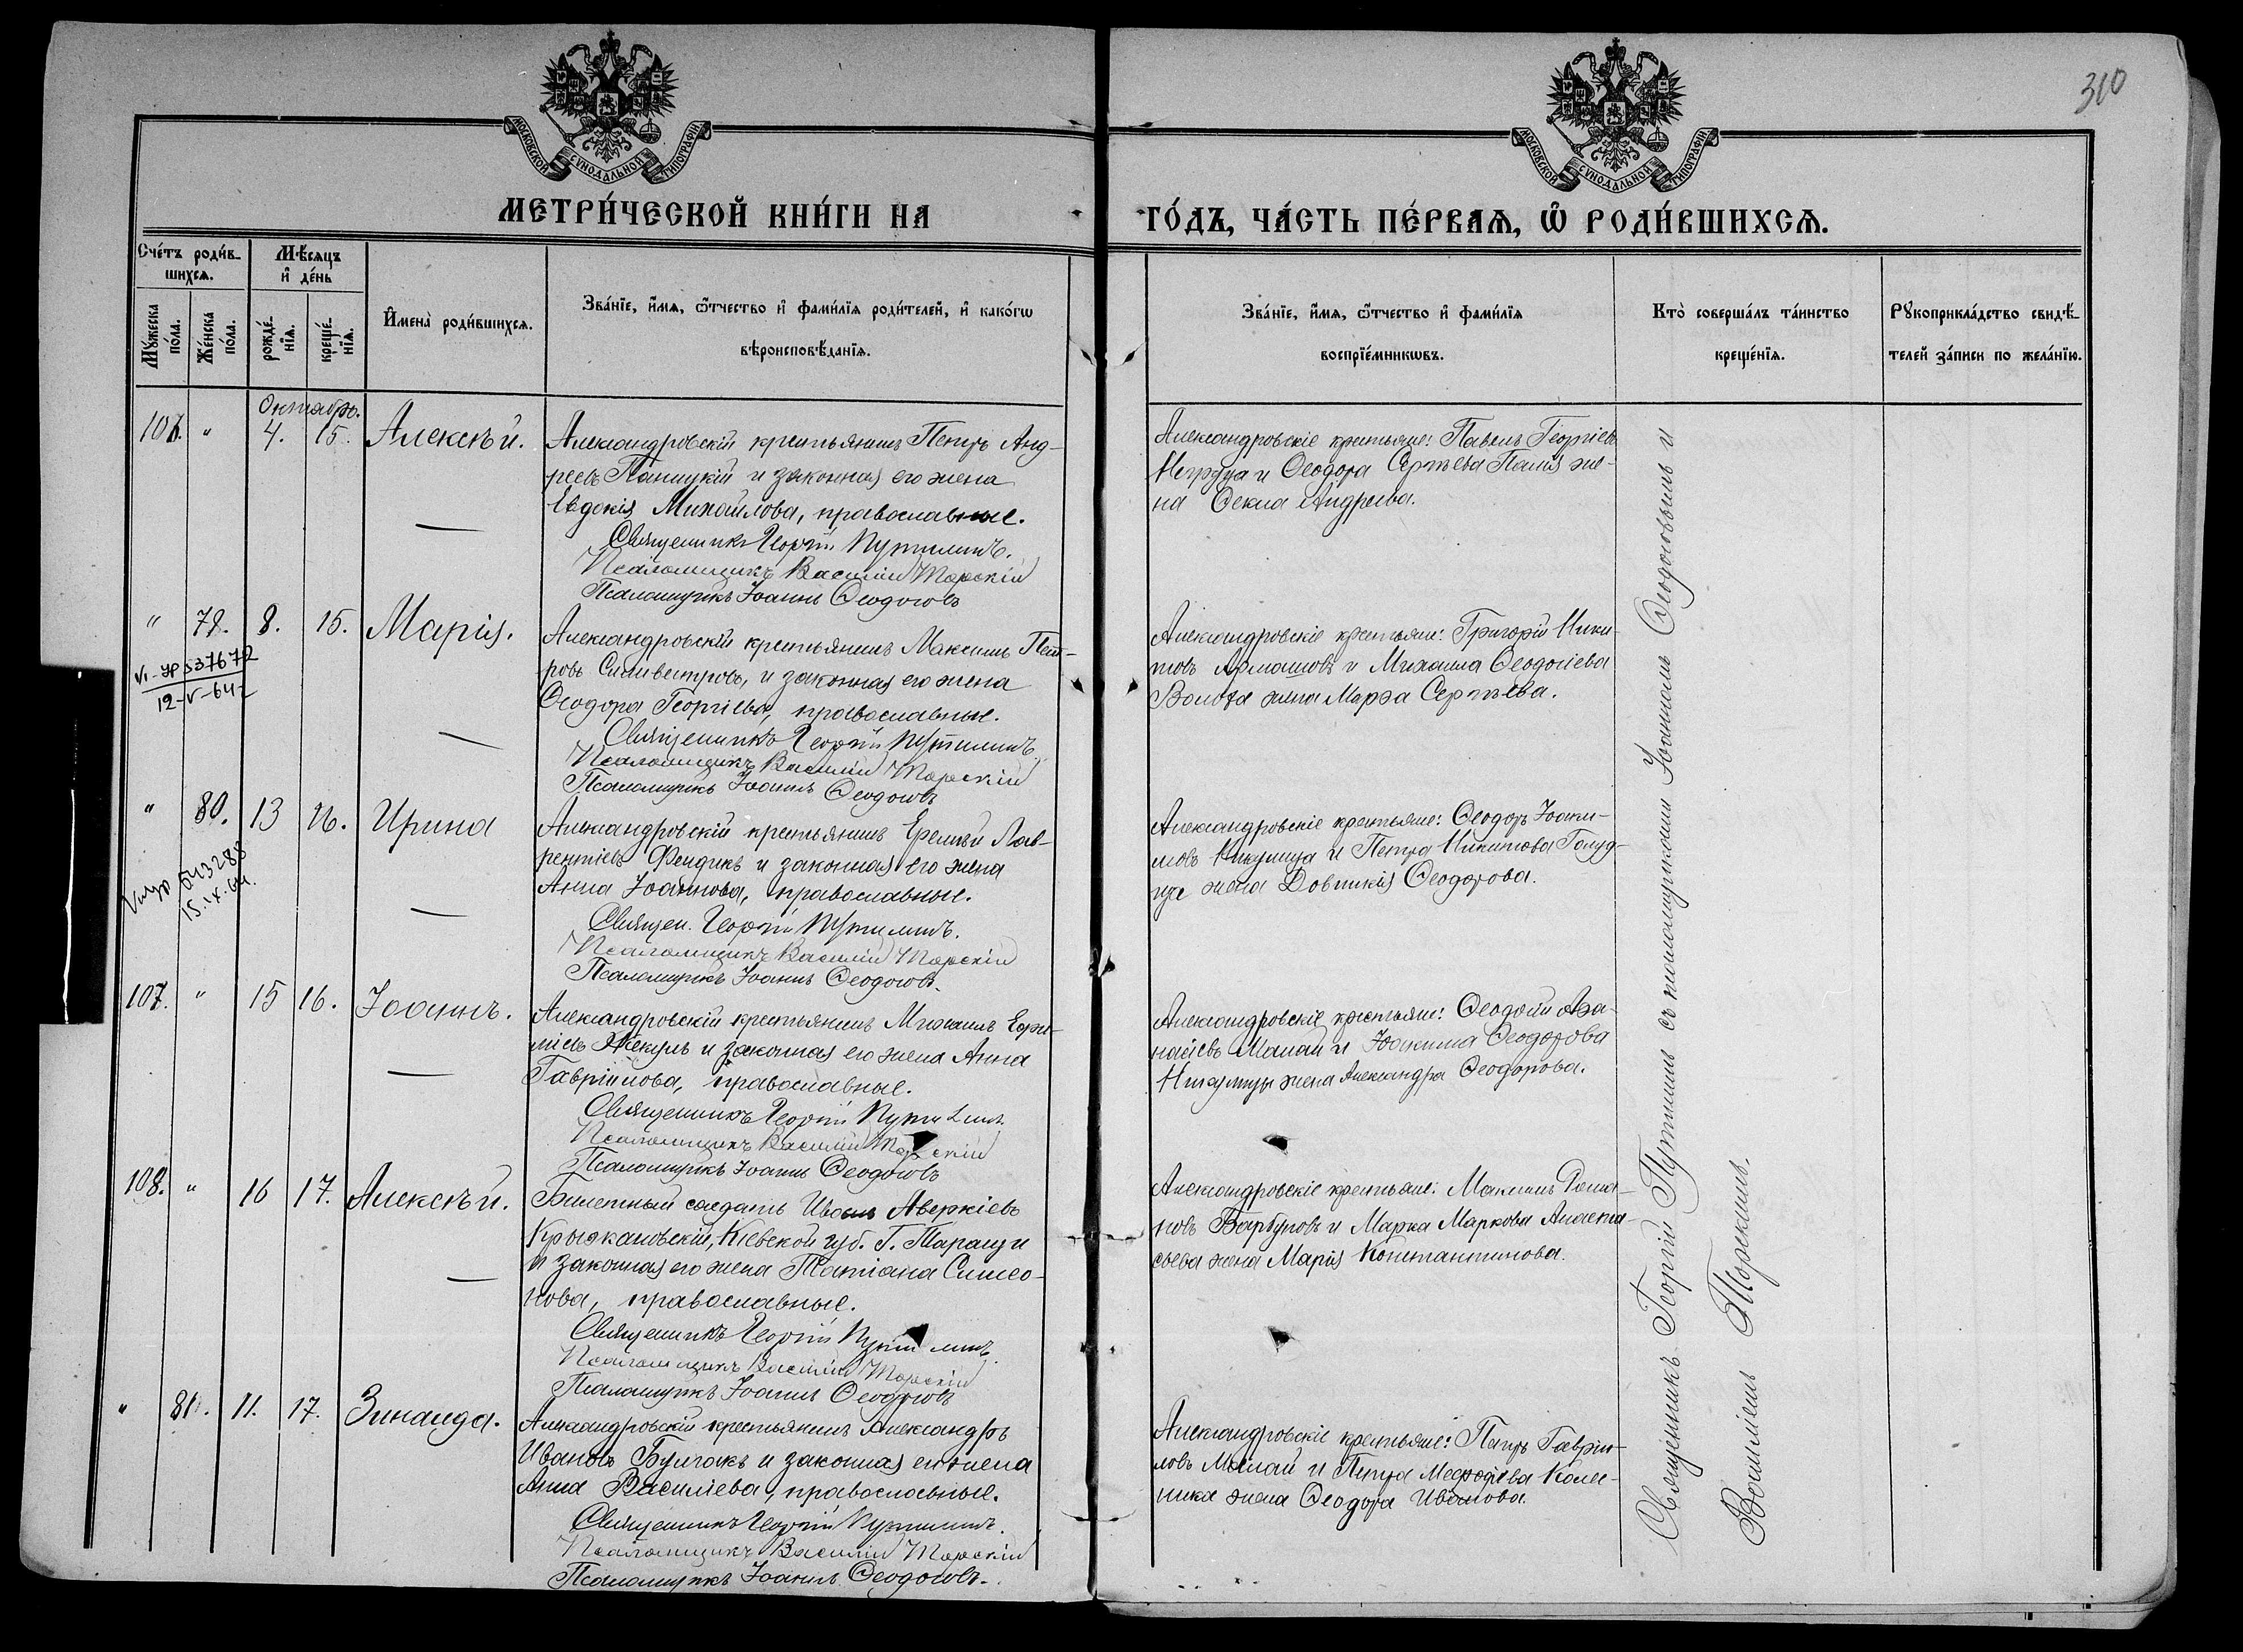 310
МОСКОВСКОЙ СѴНОДАЛЬНОЙ ТИПОГРАФІИ
МОСКОВСКОЙ СѴНОДАЛЬНОЙ ТИПОГРАФІИ
МЕТРИ́ЧЕСКОЙ КНИ́ГИ НА
ГО́ДЪ, ЧА́СТЬ ПЕ́РВАѦ, Ѡ РОДИ́ВШИХСѦ.
Сче́тъ роди́в-
шихсѧ.
Мѣ́сѧцъ
и҆ де́нь
Мꙋ́жеска
по́ла.
Же́нска
по́ла.
рожде́-
нїѧ.
креще́-
нїѧ.
И҆мена̀ роди́вшихсѧ.
Зва́нїе, и҆́мѧ, ѻ҆́тчество и҆ фами́лїѧ роди́телей, и҆ како́гѡ
вѣроисповѣ́данїѧ.
Зва́нїе, и҆́мѧ, ѻ҆́тчество и҆ фами́лїѧ
воспрїе́мникѡвъ.
Кто̀ соверша́лъ та́инство
креще́нїѧ.
Рꙋкоприкла́дство свидѣ́-
телей за́писи по жела́нїю.
Октябрь.
106. " 4. 15. Алексѣй.
Александровскій крестьянинъ Петръ Анд-
реевъ Паницкій и законная его жена
Евдокія Михайлова, православные.
Священникъ Георгій Путилинъ.
Псаломщикъ Василій Торскій
Псаломщикъ Іоаннъ Ѳеодосовъ
Александровскіе крестьяне: Павелъ Георгіевъ
Негруца и Ѳеодора Сергѣева Палій же-
на Ѳекла Андреева.
" 79. 8. 15. Марія.
12-V-64
Александровскій крестьянинъ Максимъ Пет-
ровъ Силивестровъ, и законная его жена
Ѳеодора Георгіева, православные.
Священникъ Георгій Путилинъ
Псаломщикъ Василій Торскій
Псаломщикъ Іоаннъ Ѳеодосовъ
Александровскіе крестьяне: Григорій Ники-
товъ Армашовъ и Михаила Ѳеодосіева
жена Марѳа Сергѣева.
" 80. 13 16. Ирина
643288
15.IX.64.
Александровскій крестьянинъ Еремѣй Лав-
рентіевъ Фендикъ и законная его жена
Анна Іоаннова, православные.
Священ. Георгій Путилинъ.
Псаломщикъ Василій Торскій
Псаломщикъ Іоаннъ Ѳеодосовъ.
Александровскіе крестьяне: Ѳеодоръ Іоаки-
мовъ Никулица и Петра Никитова Голуд-
це жена Домникія Ѳеодорова.
107. " 15 16. Іоаннъ.
Александровскій крестьянинъ Михаилъ Ефи-
міевъ Жекулъ и законная его жена Анна
Гавріилова, православные.
Священникъ Георгій Путилинъ
Псаломщикъ Василій Торскій
Псаломщикъ Іоаннъ Ѳеодосовъ
Александровскіе крестьяне: Ѳеодосій Аѳа-
насіевъ Малай и Іоакима Ѳеодорова
Никулицы жена Александра Ѳеодорова.
108. " 16 17. Алексѣй.
Билетный солдатъ Иванъ Аверкіевъ
Крыжановскій, Кіевской губ. Г. Таращи
и законная его жена Татіана Симео-
нова, православные.
Священникъ Георгій Путилинъ
Псаломщикъ Василій Торскій
Псаломщикъ Іоаннъ Ѳеодосовъ
Александровскіе крестьяне: Максимъ Рома-
новъ Барбуловъ и Марка Маркова Анаста-
сьева жена Марія Константинова.
" 81. 11. 17. Зинаида.
Александровскій крестьянинъ Александръ
Ивановъ Булгакъ и законная его жена
Анна Василіева, православные.
Священникъ Георгій Путилинъ.
Псаломщикъ Василій Торскій
Псаломщикъ Іоаннъ Ѳеодосовъ.
Александровскіе крестьяне: Петръ Гаврии-
ловъ Малай и Петра Меѳодіева Колес-
ника жена Ѳеодора Иванова.
Священникъ Георгій Путилинъ съ псаломщиками Іоанномъ Ѳеодосовымъ и
Василіемъ Торскимъ.